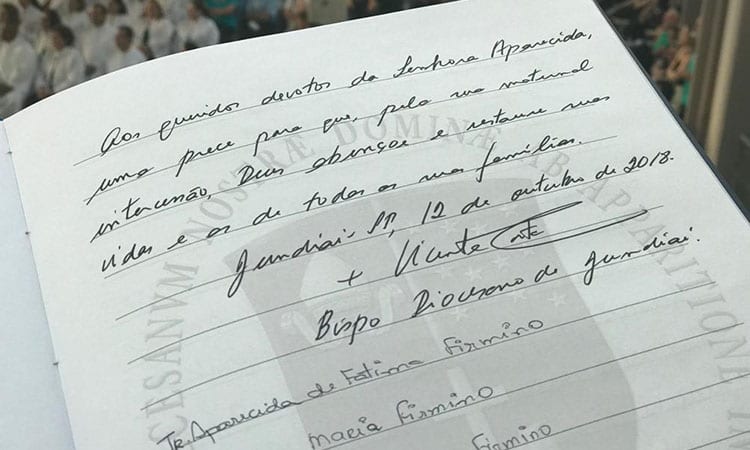 Aos queridos devotos da Senhora Aparecida,
uma prece para que, pela sua maternal
intercessão, Deus abençoe e restaure suas
vidas e as de todas as suas famílias.
Jundiaí-SP, 12 de outubro de 2018.
+ Vicente Costa
Bispo Diocesano de Jundiaí.
Aparecida de Fatima Firmino
Maria Firmino
Firmino
CESANVM NOSTRÆ DOMINÆ AB APPARITIONE IN